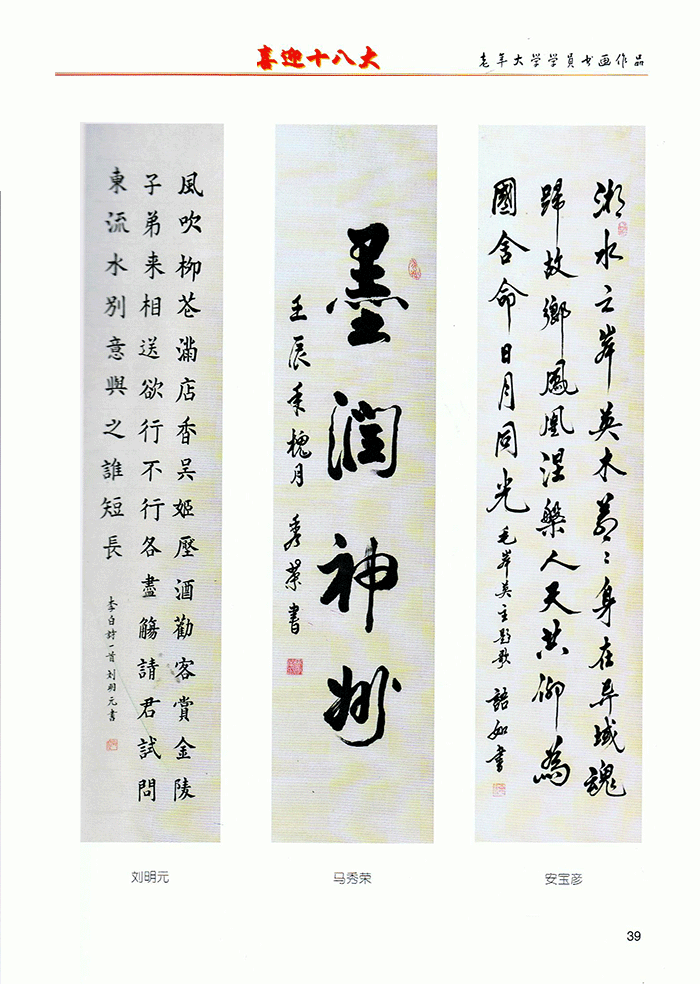 喜迎十八大
老年大学学员书画作品
風吹柳花滿店香吳姬壓酒勸客賞金陵
子弟来相送欲行不行各盡觴請君試問
東流水別意與之誰短長
李白詩一首 刘明元書
刘明元
墨润神州
壬辰秊槐月 秀榮書
马秀荣
湘水之岸英木蒼々身在异域魂
歸故鄉鳳凰涅槃人天共仰為
國舍命日月同光
毛岸英主題歌 語如書
安宝彦
39